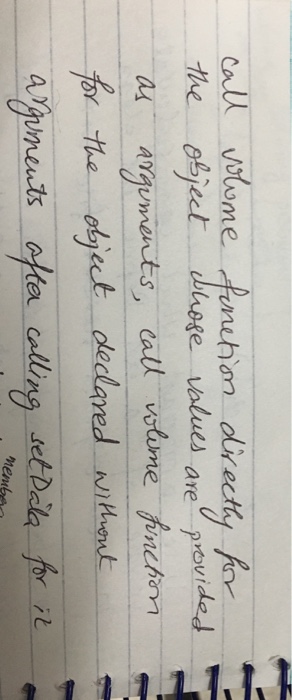 call volume function directly for
the object whose values are provided
as arguments, call volume function
for the object declared without
arguments after calling setData for it
member